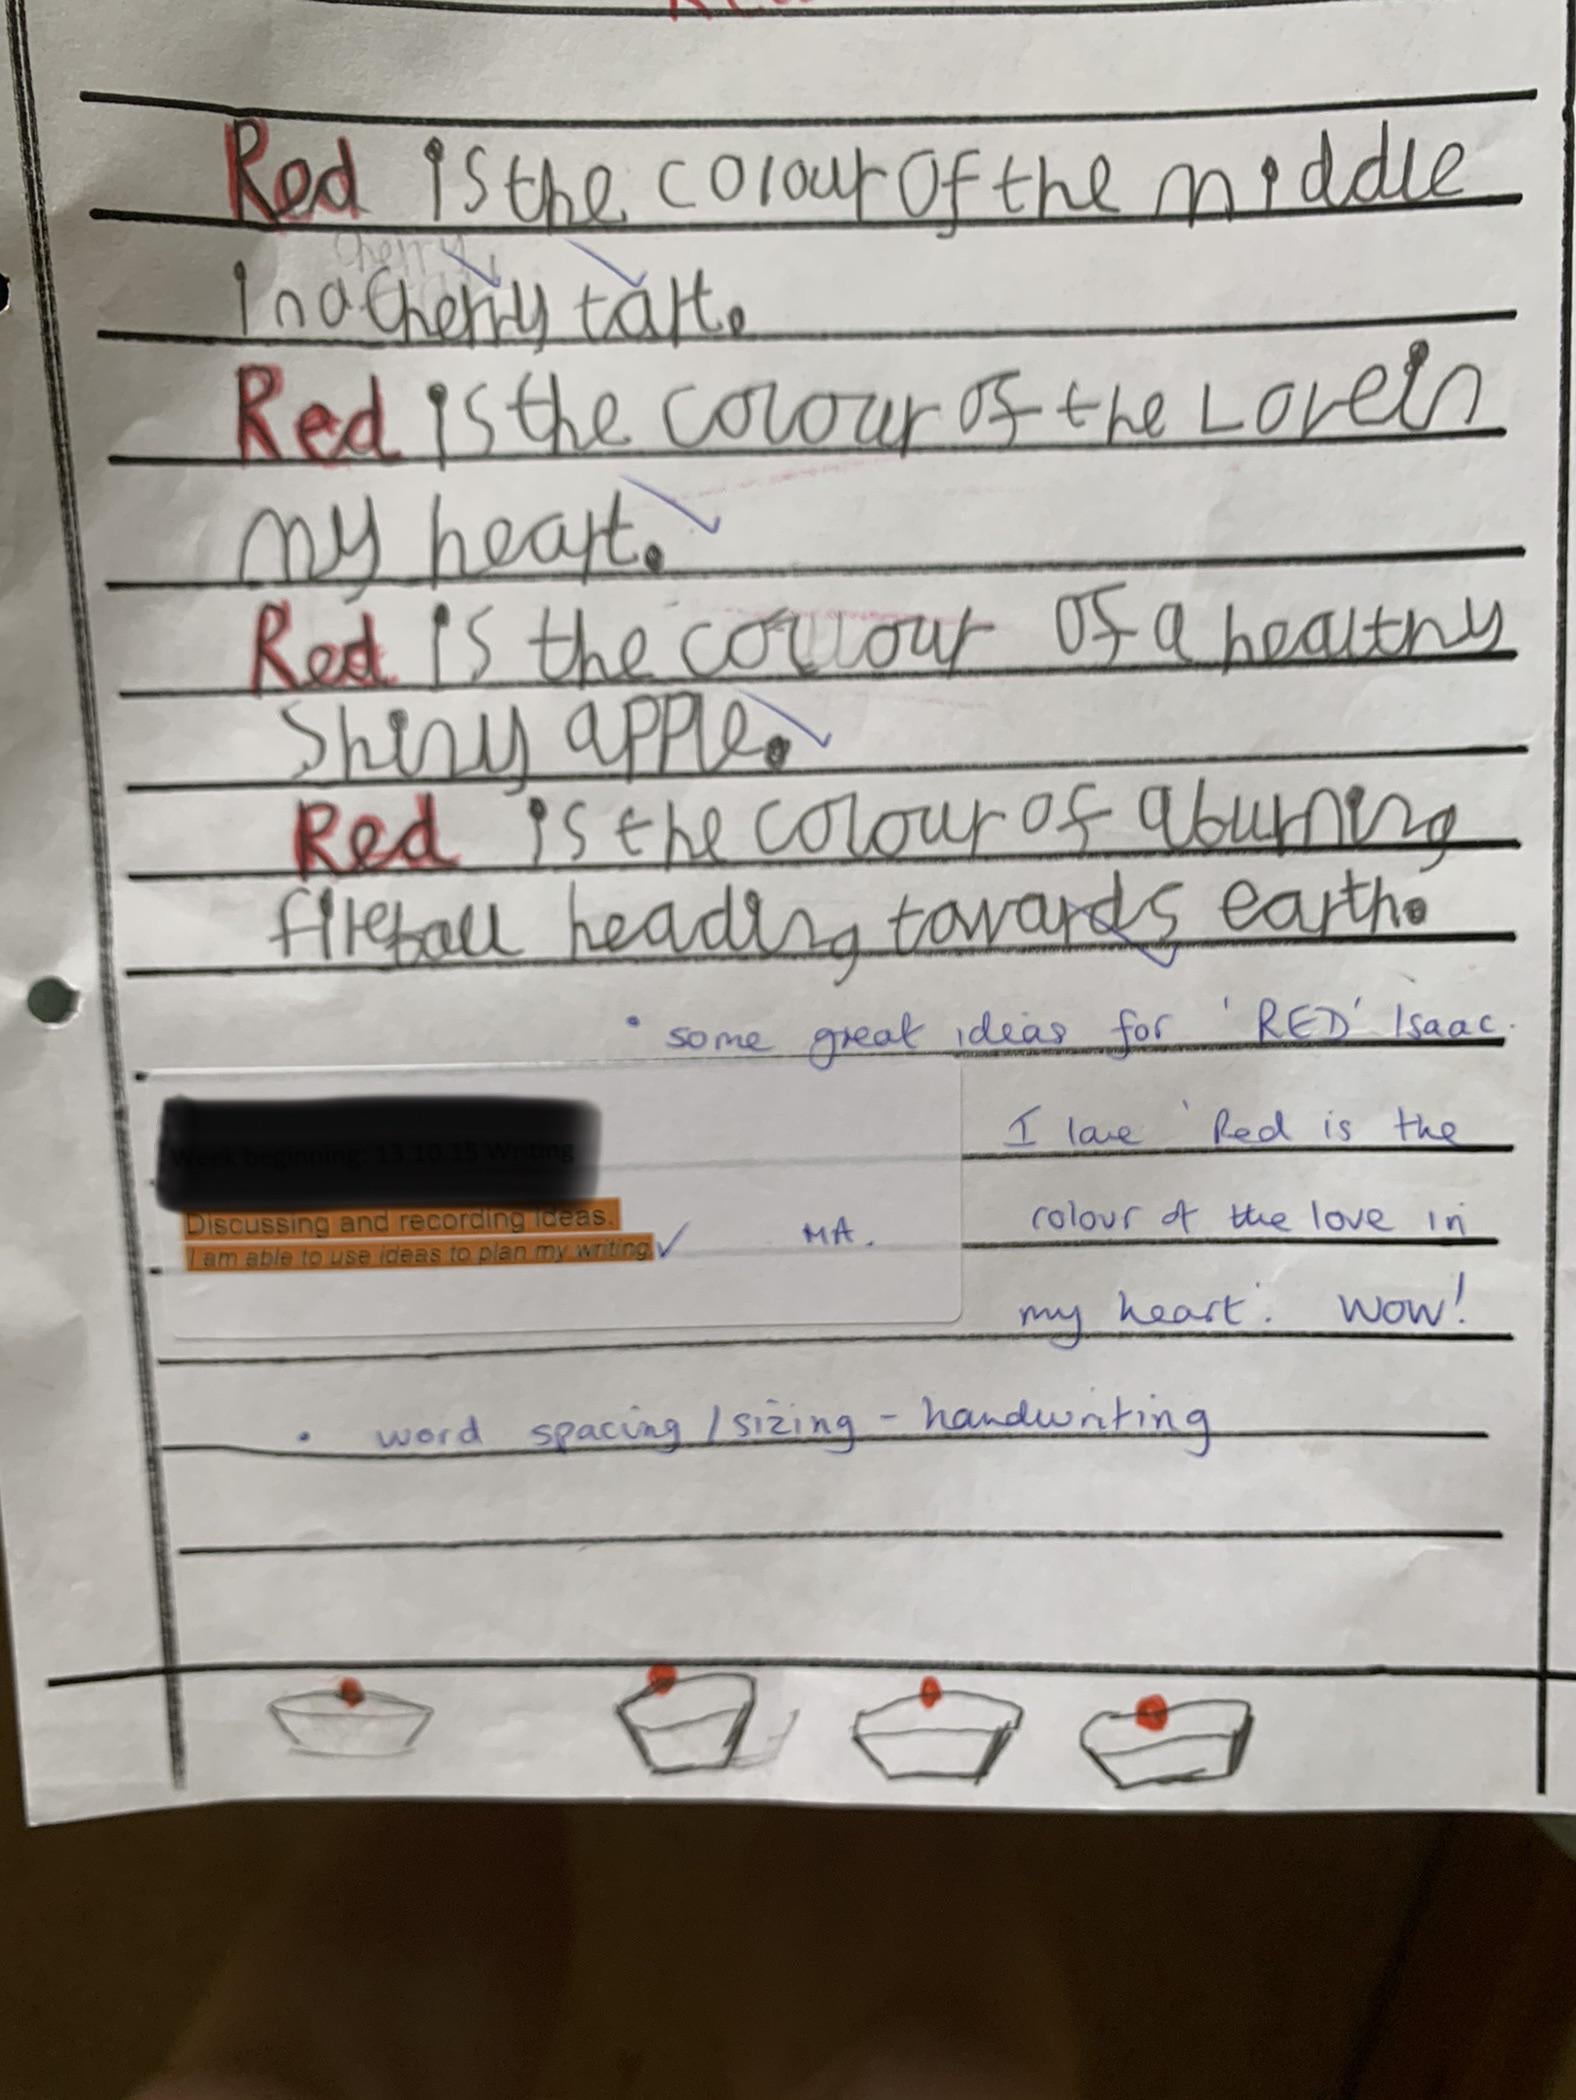 Red is the colour of the middle
cherry
in a cherry tart.
Red is the colour of the Love in
my heart.
Red is the colour of a healthy
shiny apple.
Red is the colour of a burning
fireball heading towards earth.
• some great ideas for 'RED' Isaac.
I love 'Red is the
colour of the love in
my heart'. Wow!
Week beginning: 13.10.15 Writing
Discussing and recording ideas.
I am able to use ideas to plan my writing ✓ MA.
• word spacing / sizing - handwriting